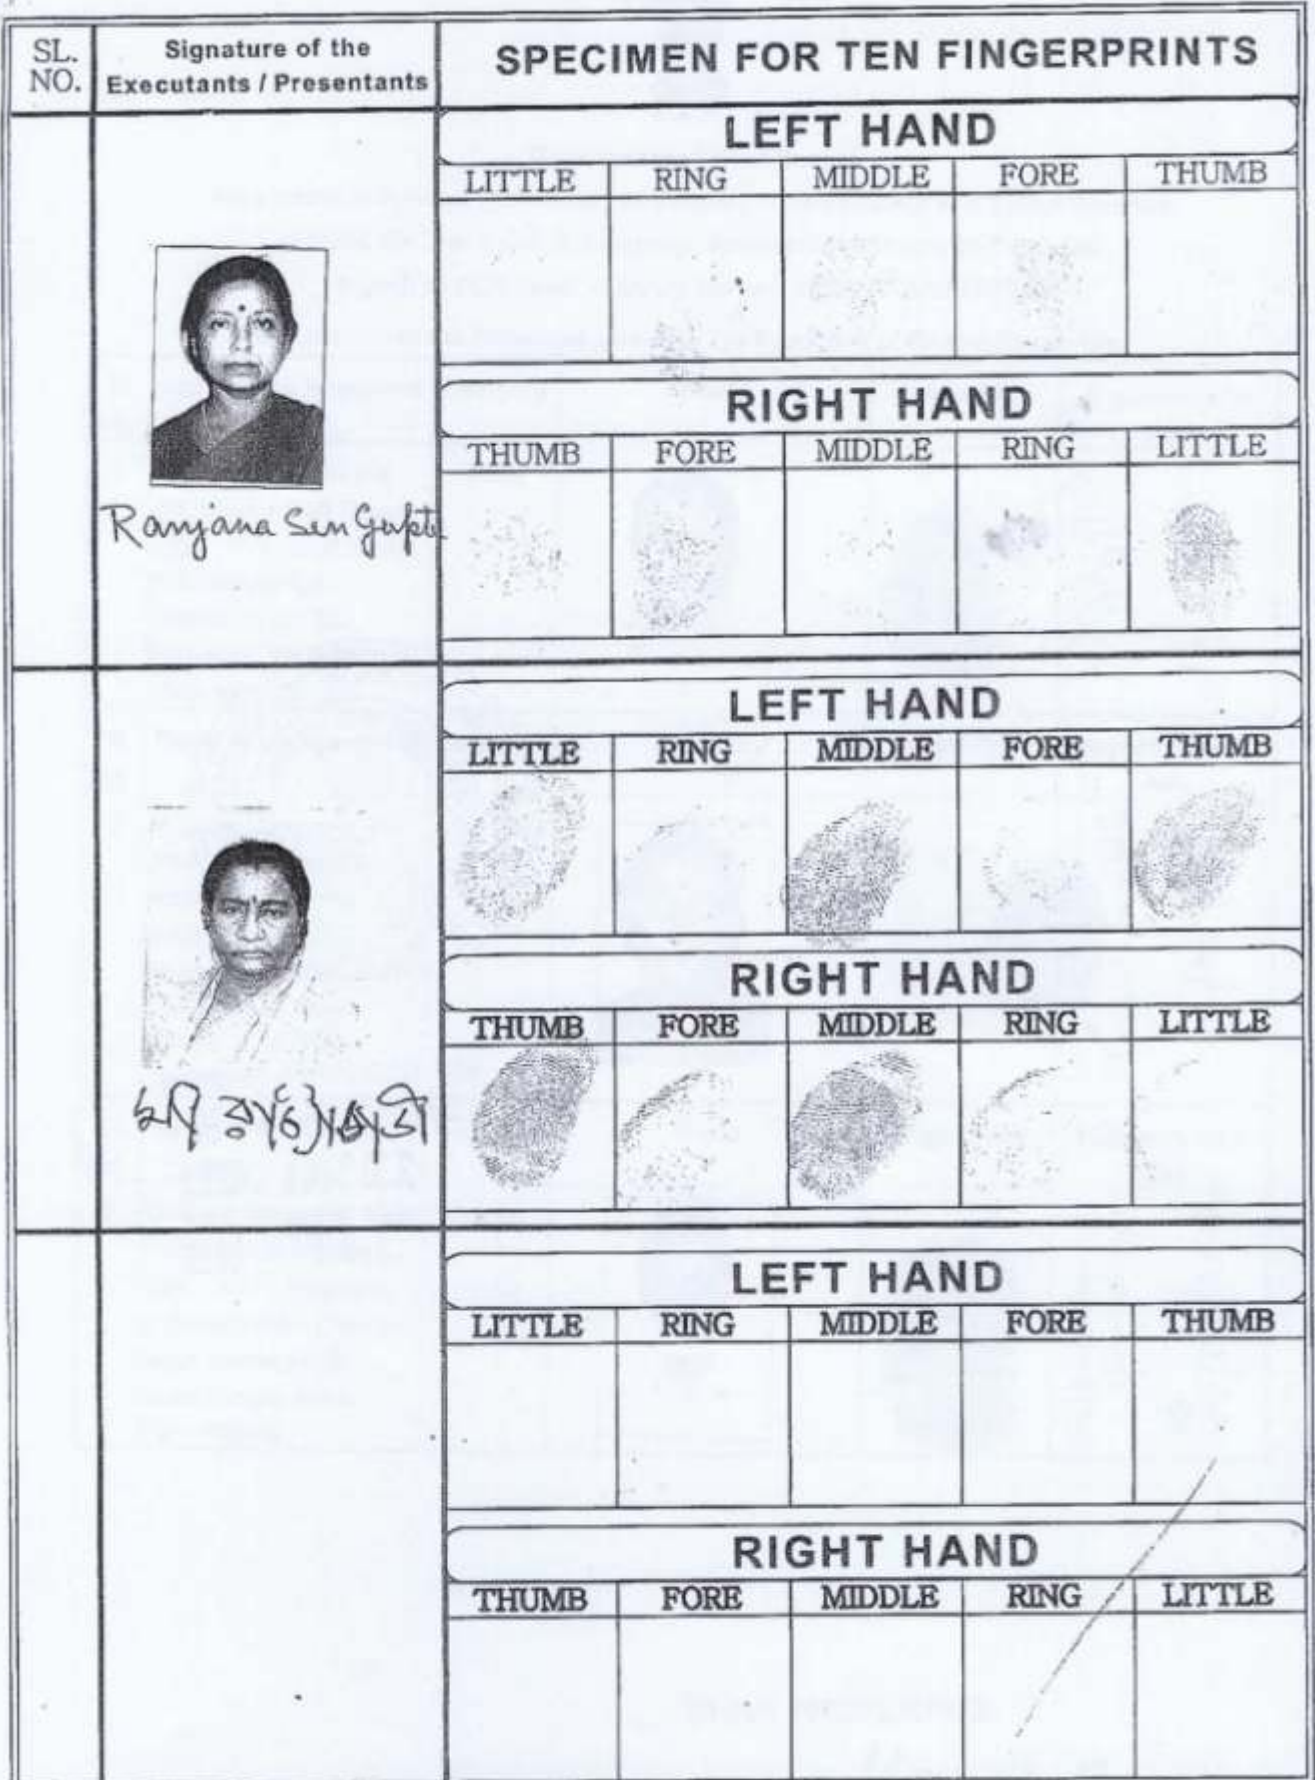 SL. NO.
Signature of the
Executants / Presentants
SPECIMEN FOR TEN FINGERPRINTS
LEFT HAND
LITTLE RING MIDDLE FORE THUMB
RIGHT HAND
THUMB FORE MIDDLE RING LITTLE
Ranjana Sen Gupta
LEFT HAND
LITTLE RING MIDDLE FORE THUMB
RIGHT HAND
THUMB FORE MIDDLE RING LITTLE
LEFT HAND
LITTLE RING MIDDLE FORE THUMB
RIGHT HAND
THUMB FORE MIDDLE RING LITTLE